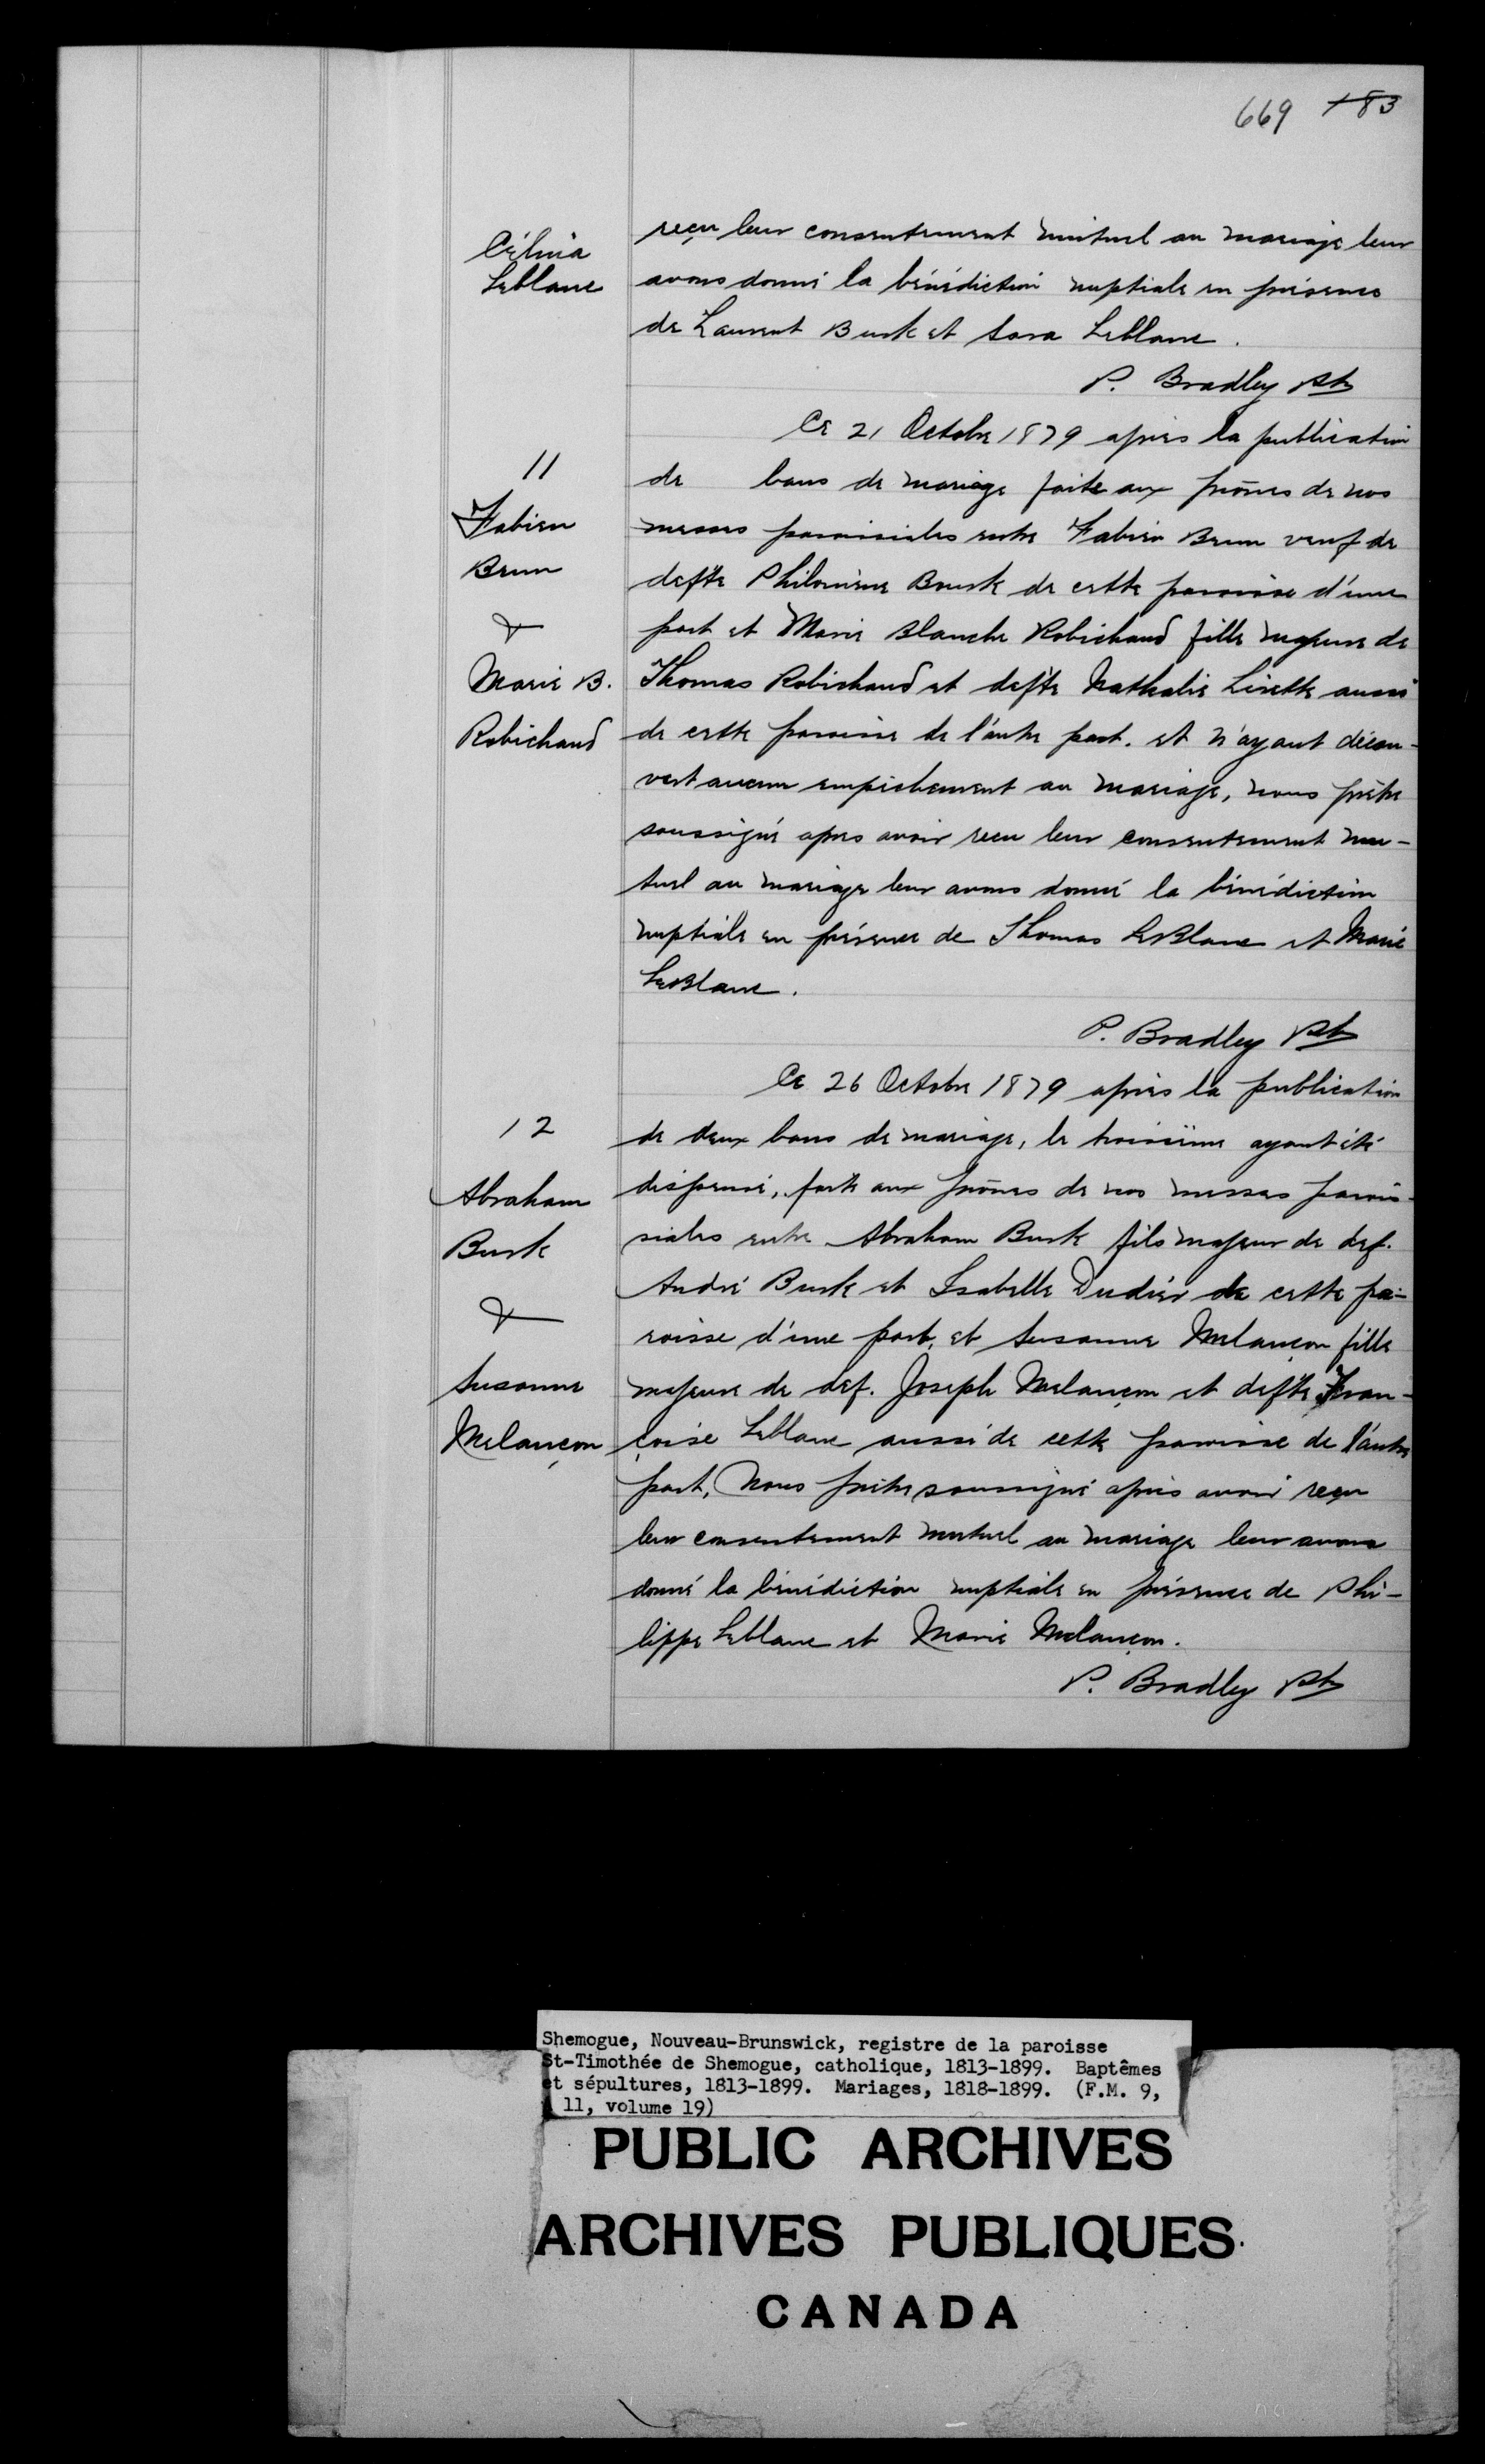 669 183
Célina
Leblanc
reçu leur consentement mutuel au mariage leur
avons donné la bénédiction nuptiale en présence
de Laurent Burk et Sara Leblanc.
P. Bradley Ptr
Ce 21 Octobre 1879 après la publication
11
Fabien
Brun
&
Marie B.
Robichaud
de bans de mariage faite aux prônes de nos
messes paroissiales entre Fabien Brun veuf de
defte Philomène Bourk de cette paroisse d'une
part et Marie Blanche Robichaud fille majeure de
Thomas Robichaud et defte Nathalie Lirette aussi
de cette paroisse de l'autre part. et n'ayant décou-
vert aucun empêchement au mariage, nous prêtre
soussigné apres avoir recu leur consentement mu-
tuel au mariage leur avons donné la bénédiction
nuptiale en présence de Thomas LeBlanc et Marie
LeBlanc.
P. Bradley Ptr
Ce 26 Octobre 1879 après la publication
12
Abraham
Burk
&
Susanne
Melançon
de deux bans de mariage, le troisième ayant été
dispensé, faite aux prônes de nos messes parois-
siales entre Abraham Burk fils majeur de def.
André Burk et Isabelle Dudier de cette pa-
roisse d'une part, et Susanne Melançon fille
majeure de def. Joseph Melançon et defte Fran-
çoise Leblanc aussi de cette paroisse de l'autre
part, Nous prêtre soussigné après avoir reçu
leur consentement mutuel au mariage leur avons
donné la bénédiction nuptiale en présence de Phi-
lippe Leblanc et Marie Melançon.
P. Bradley Ptr
Shemogue, Nouveau-Brunswick, registre de la paroisse
St-Timothée de Shemogue, catholique, 1813-1899. Baptêmes
et sépultures, 1813-1899. Mariages, 1818-1899. (F.M. 9,
11, volume 19)
PUBLIC ARCHIVES
ARCHIVES PUBLIQUES
CANADA